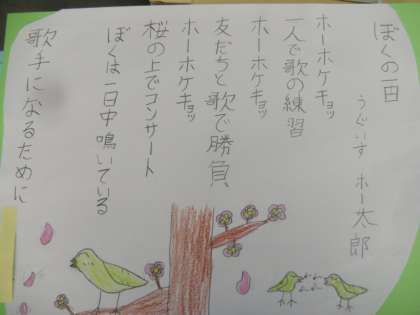 ぼくの一日
うぐいす ホー太郎
ホーホケキョッ
一人で歌の練習
ホーホケキョッ
友だちと歌で勝負
ホーホケキョッ
桜の上でコンサート
ぼくは一日中鳴いている
歌手になるために